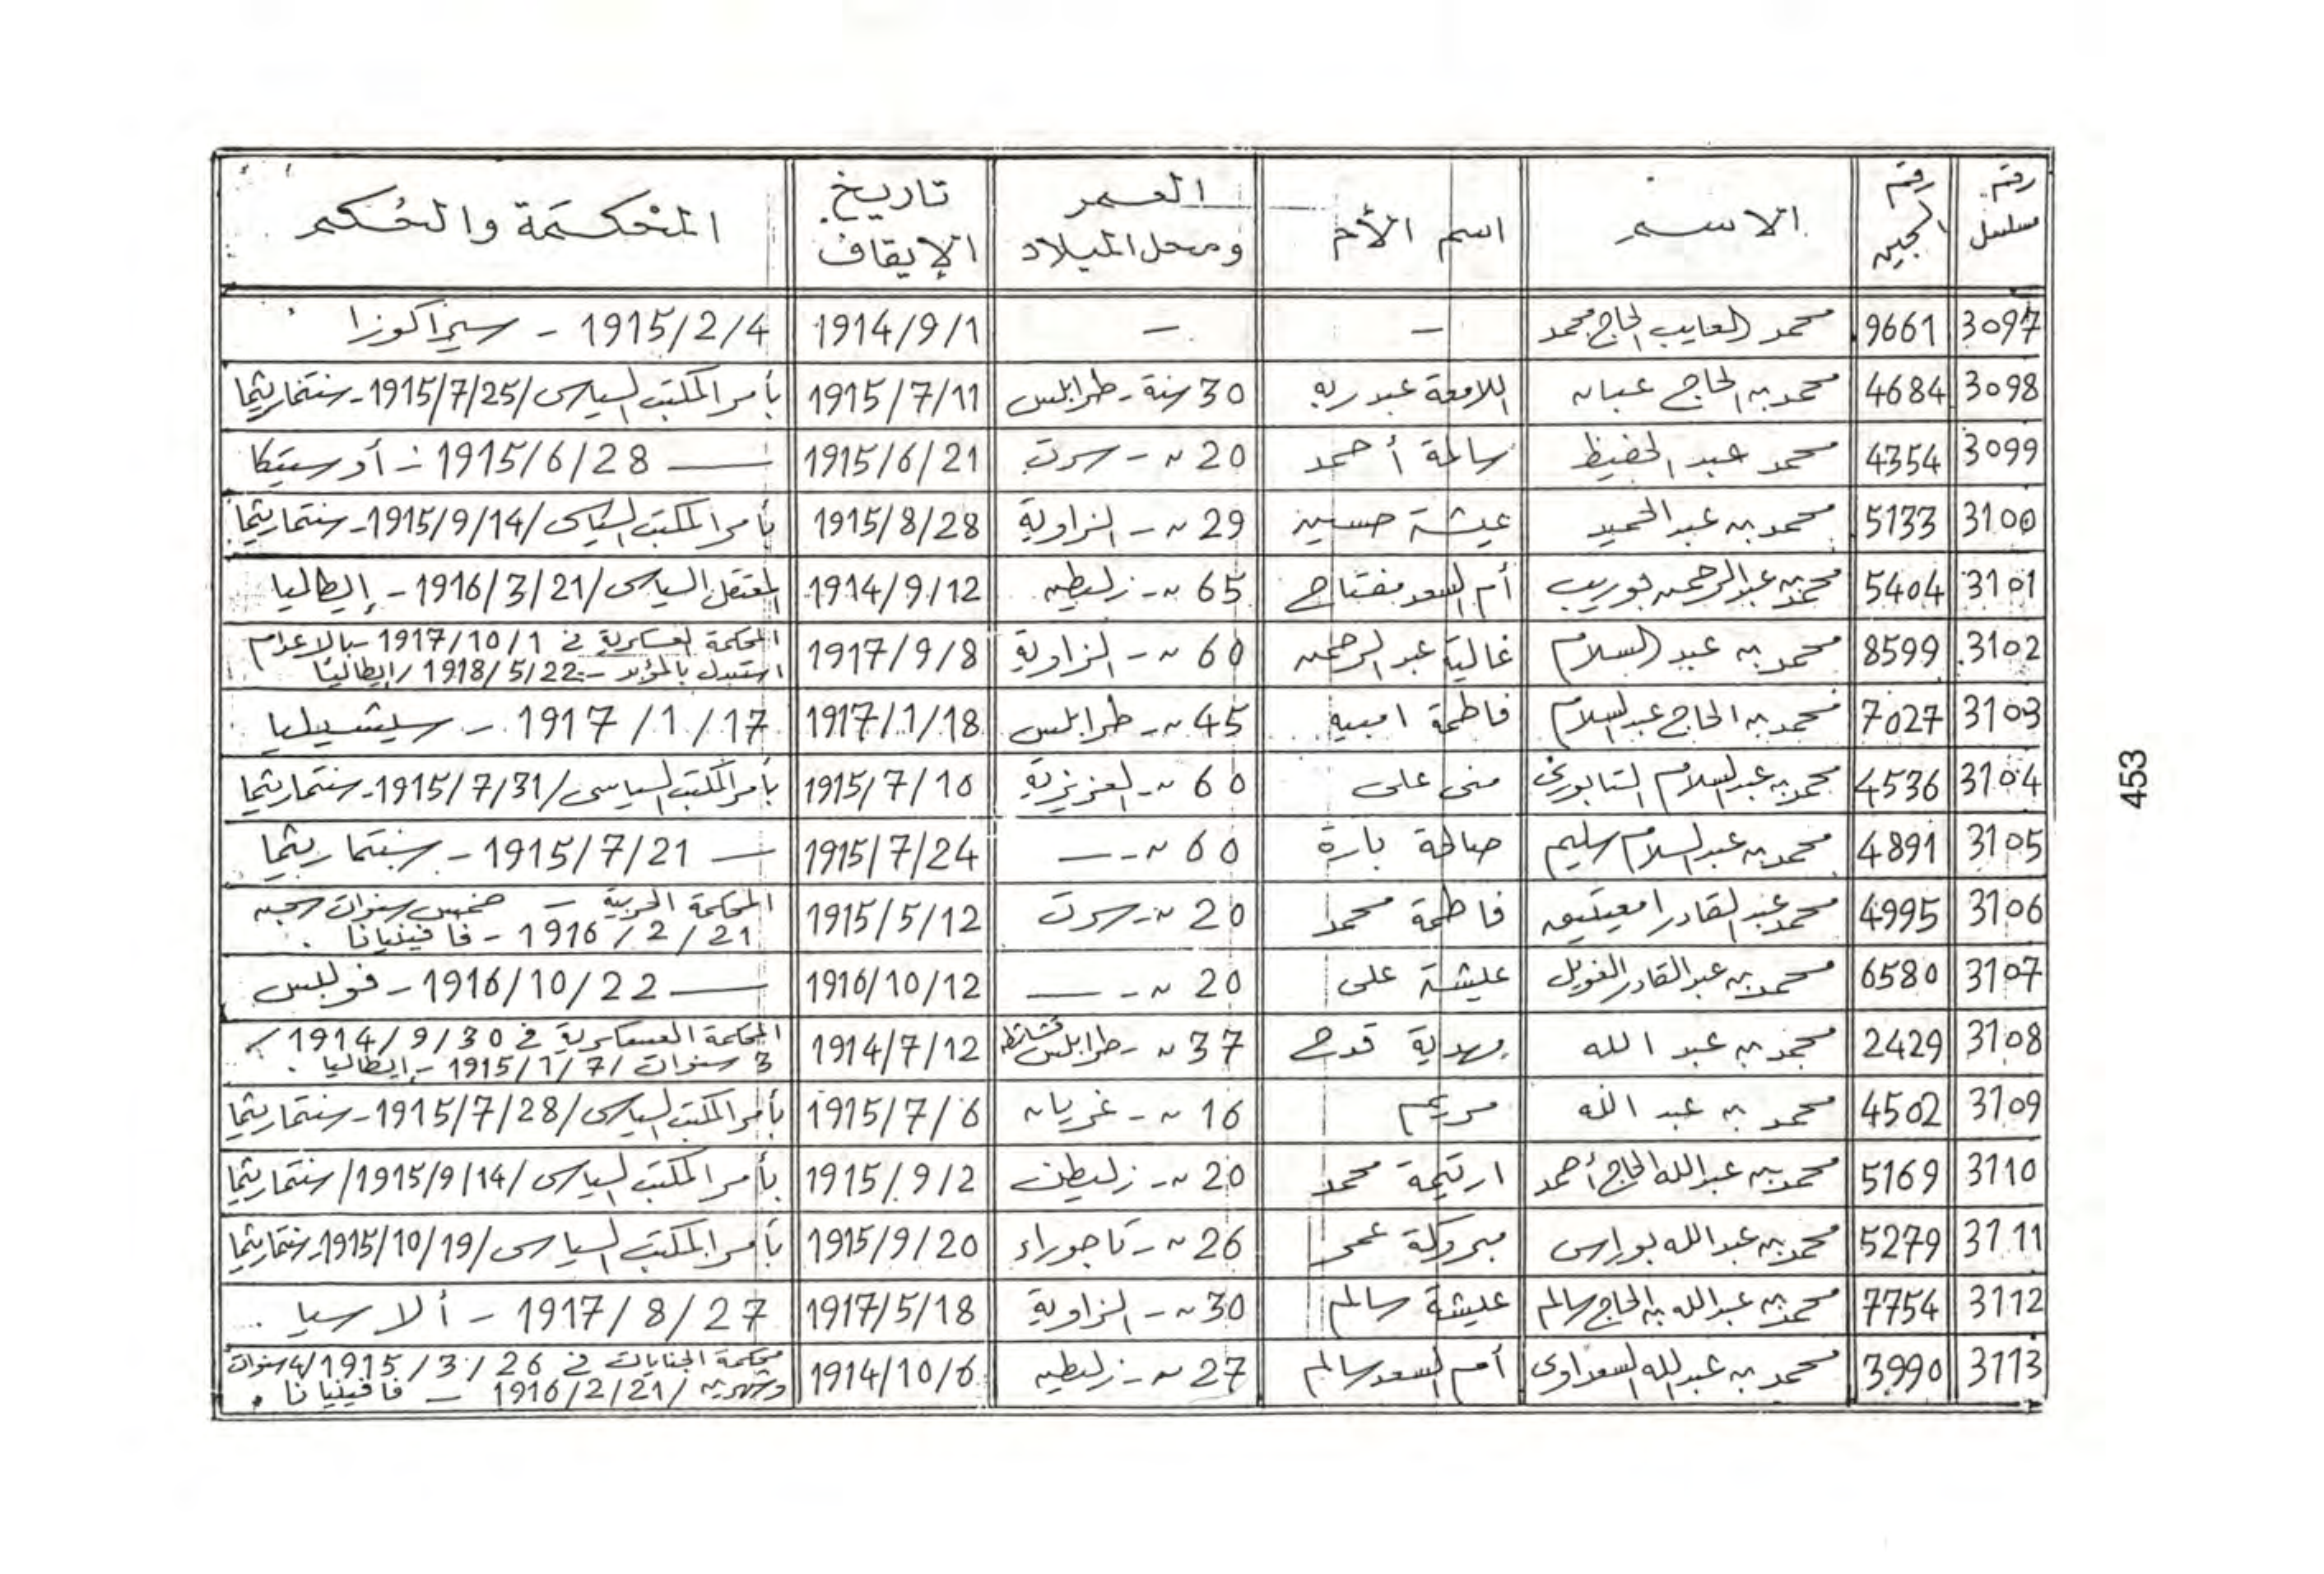 رقم مسلسل | رقم السجين | الاسم | اسم الأم | العمر ومحل الميلاد | تاريخ الإيقاف | المحكمة والحكم
3097 | 9661 | محمد العايب الحاج محمد | – | – | 1914/9/1 | 1915/2/4 – سيراكوزا
3098 | 4684 | محمد بن الحاج عبان | اللامعة عبدربه | 30 سنة – طرابلس | 1915/7/11 | بأمر المكتب السياسى/1915/7/25 – سنتماريثما
3099 | 4354 | محمد عبد الحفيظ | سالمة أحمد | 20 ~ – سرت | 1915/6/21 | — 1915/6/28 – أوستيكا
3100 | 5133 | محمد بن عبد الحميد | عيشة حسين | 29 ~ – الزاوية | 1915/8/28 | بأمر المكتب السياسى/1915/9/14 – سنتماريثما
3101 | 5404 | محمد بن عبد الرحمن بوريب | أم السعد مفتاح | 65 ~ – زليطن | 1914/9/12 | المعتقل السياسى/1916/3/21 – إيطاليا
3102 | 8599 | محمد بن عبد السلام | غالية عبد الرحمن | 60 ~ – الزاوية | 1917/9/8 | المحكمة العسكرية فى 1917/10/1 – بالاعدام
استبدل بالمؤبد – 1918/5/22 / إيطاليا
3103 | 7027 | محمد بن الحاج عبد السلام | فاطمة امبيه | 45 ~ – طرابلس | 1917/1/18 | 1917/1/17 – سيتشيليا
3104 | 4536 | محمد بن عبد السلام التابورى | منى على | 60 ~ – العزيزية | 1915/7/10 | بأمر المكتب السياسى/1915/7/31 – سنتماريثما
3105 | 4891 | محمد بن عبد السلام سليم | صالحة بارة | 60 ~ – — | 1915/7/24 | — 1915/7/21 – سنتماريثما
3106 | 4995 | محمد عبد القادر امعيتيق | فاطمة محمد | 20 ~ – سرت | 1915/5/12 | المحكمة الحربية – خمس سنوات سجن
1916/2/21 – فافينيانا .
3107 | 6580 | محمد بن عبد القادر الغويل | عيشة على | 20 ~ – — | 1916/10/12 | — 1916/10/22 – فوليس
3108 | 2429 | محمد بن عبد الله | مهدية قدح | 37 ~ – طرابلس | 1914/7/12 | المحكمة العسكرية فى 1914/9/30 /
3 سنوات / 1915/1/7 – إيطاليا .
3109 | 4502 | محمد بن عبد الله | مريم | 16 ~ – غريان | 1915/7/6 | بأمر المكتب السياسى/1915/7/28 – سنتماريثما
3110 | 5169 | محمد بن عبد الله الحاج أحمد | ارتيمة محمد | 20 ~ – زليطن | 1915/9/2 | بأمر المكتب السياسى/1915/9/14/ سنتماريثما
3111 | 5279 | محمد بن عبد الله بوراس | مبروكة عمر | 26 ~ – تاجوراء | 1915/9/20 | بأمر المكتب السياسى/1915/10/19 – سنتماريثما
3112 | 7754 | محمد بن عبد الله بن الحاج سالم | عيشة سالم | 30 ~ – الزاوية | 1917/5/18 | 1917/8/27 – ألاسيا
3113 | 3990 | محمد بن عبد الله السعداوى | أم السعد سالم | 27 ~ – زليطن | 1914/10/6 | محكمة الجنايات فى 1915/3/26/4 سنوات
وشهرين / 1916/2/21 – فافينيانا .
453